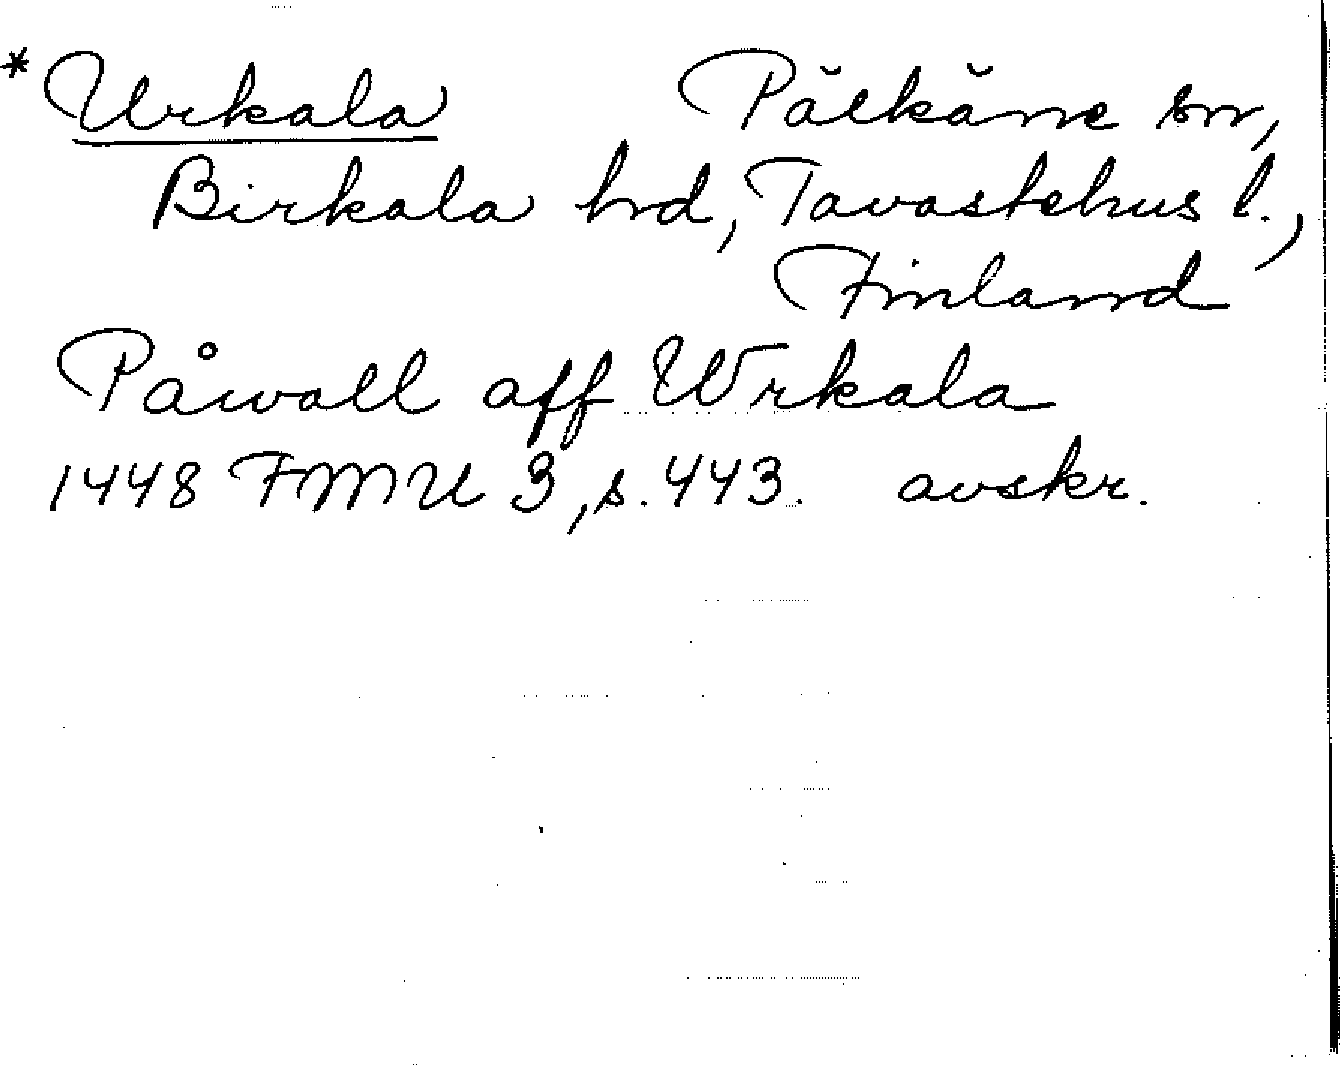 * Urkala Pälkäne sn,
Birkala hrd, Tavastehus l.,
Finland
Påwall aff Wrkala
1448 FMU 3, s. 443. avskr.